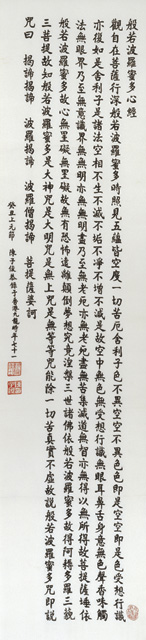 般若波羅蜜多心經
觀自在菩薩行深般若波羅蜜多時照見五蘊皆空度一切苦厄舍利子色不異空空不異色色即是空空即是色受想行識
亦復如是舍利子是諸法空相不生不滅不垢不淨不增不減是故空中無色無受想行識無眼耳鼻舌身意無色聲香味觸
法無眼界乃至無意識界無無明亦無無明盡乃至無老死亦無老死盡無苦集滅道無智亦無得以無所得故菩提薩埵依
般若波羅蜜多故心無罣礙無罣礙故無有恐怖遠離顛倒夢想究竟涅槃三世諸佛依般若波羅蜜多故得阿耨多羅三藐
三菩提故知般若波羅蜜多是大神咒是大明咒是無上咒是無等等咒能除一切苦真實不虛故說般若波羅蜜多咒即說
咒曰 揭諦揭諦 波羅揭諦 波羅僧揭諦 菩提薩婆訶
癸丑上元節